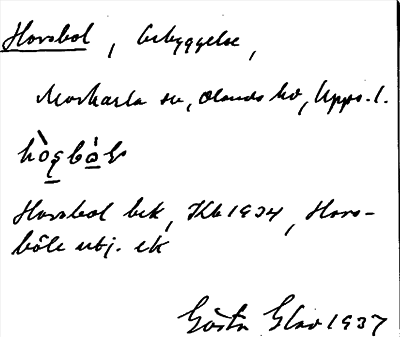 Horsbol, bebyggelse,
Morkarla sn, Olands hd, Upps. l.
Horsbol bek, Kb 1934, Hors-
böle utj. ek
Gösta Glav 1937